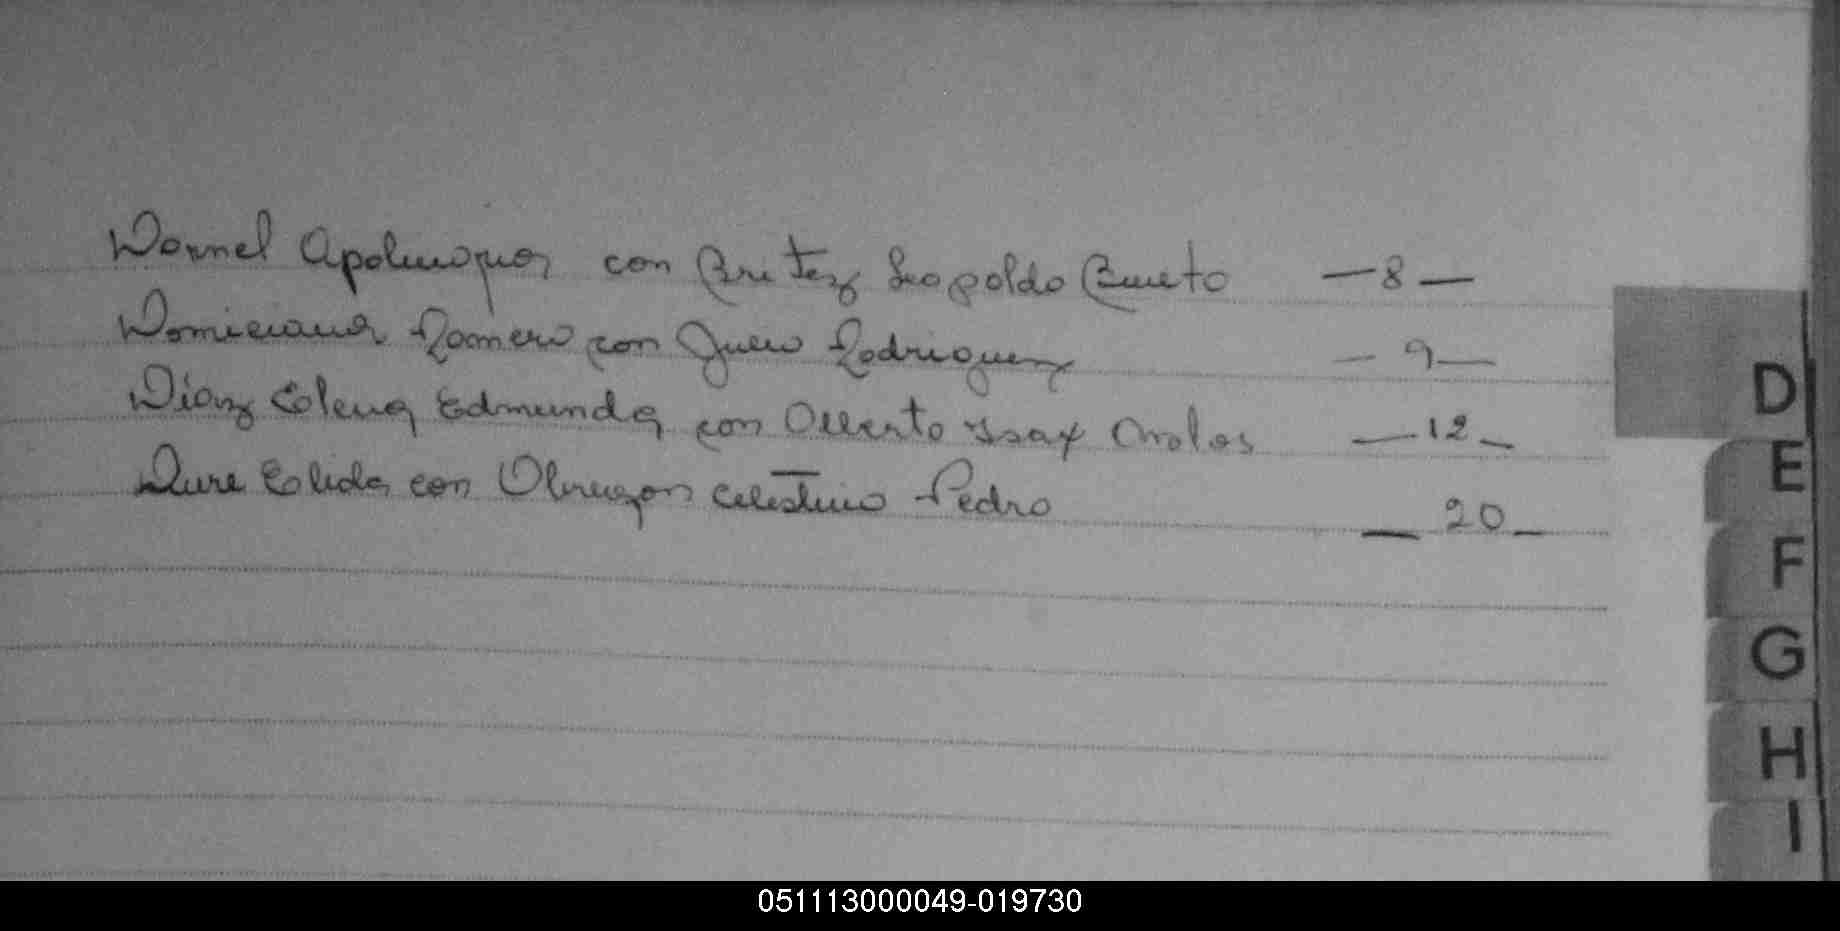 Dornel Apolinaria con Britez Leopoldo Bueto — 8 —
Domiciana Romero con Julio Rodriguez — 9 —
Diaz Elena Edmunda con Alberto Isax Avalos — 12 —
Dure Elida con Obregon Celestino Pedro — 20 —
D
E
F
G
H
I
051113000049-019730